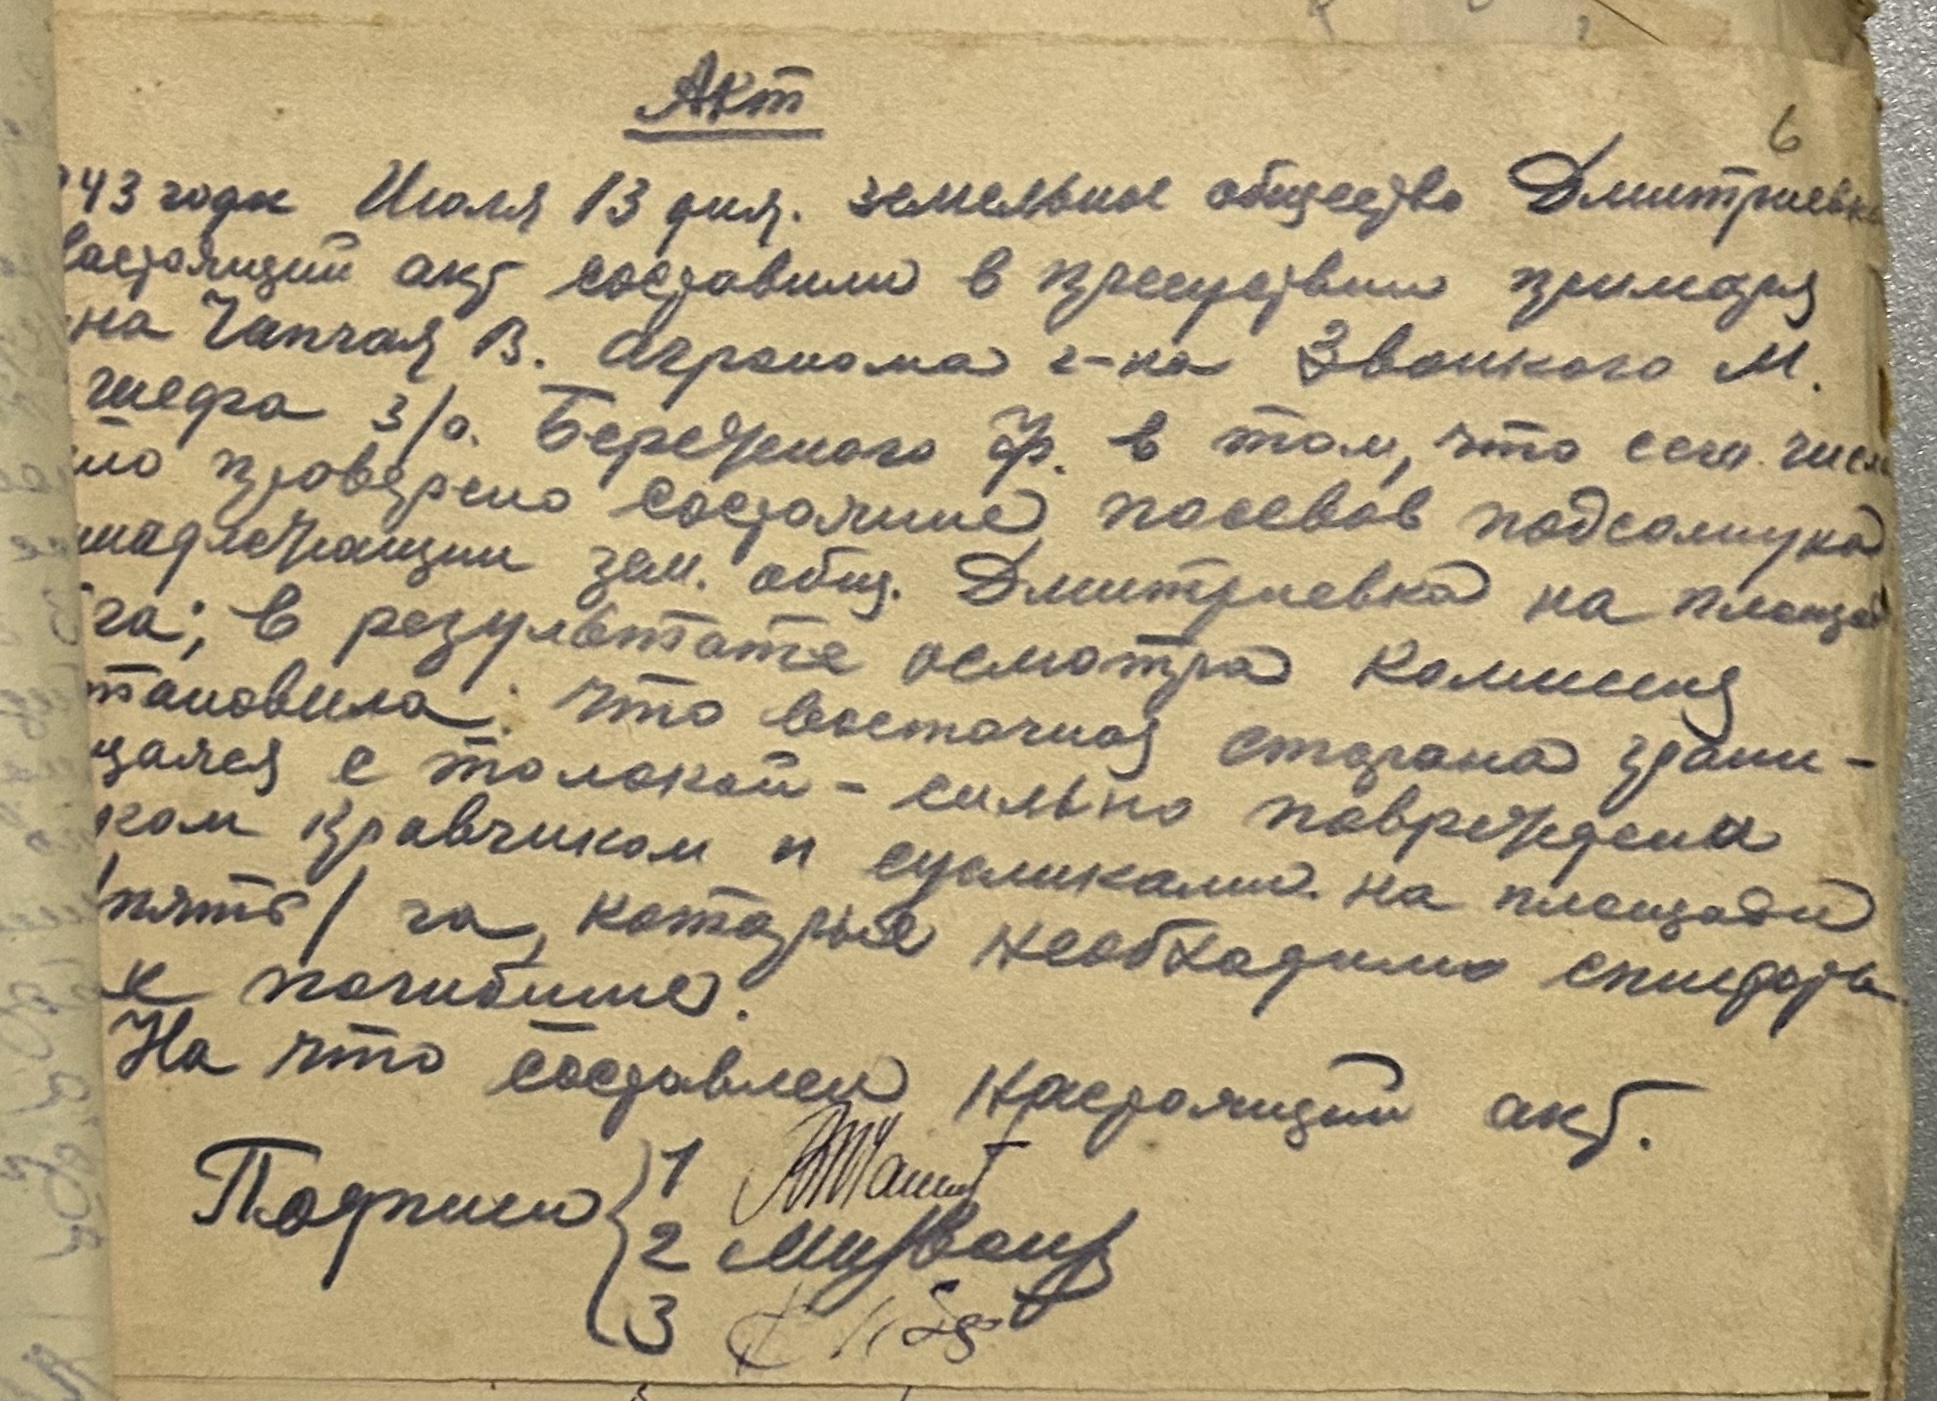 Акт
6
943 года Июля 13 дня. земельное общество Дмитриевка
настоящий акт составили в присуствии примаря
-на Чапчая В. Агронома г-на Звонкого М.
шефа з/о. Бережного Ф. в том, что сего числа
ло проверено состояние посевов подсолнуха
инадлежащии зем. общ. Дмитриевка на площади
га; в результате осмотра комиссия
тановила: что восточная сторона грани-
щаяся с толокой - сильно повреждена
ком кравчиком и сусликами на площади
/пять/ га, которые необходимо списать
к погибшие.
На что составлен настоящий акт.
Подписи 1
2
3